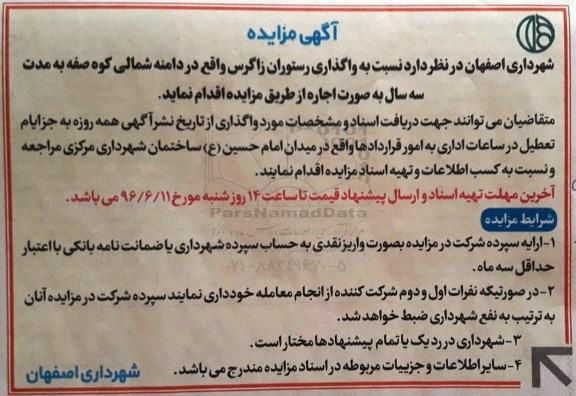 آگهی مزایده
شهرداری اصفهان در نظر دارد نسبت به واگذاری رستوران زاگرس واقع در دامنه شمالی کوه صفه به مدت
سه سال به صورت اجاره از طریق مزایده اقدام نماید.
متقاضیان می توانند جهت دریافت اسناد و مشخصات مورد واگذاری از تاریخ نشر آگهی همه روزه به جز ایام
تعطیل در ساعات اداری به امور قراردادها واقع در میدان امام حسین (ع) ساختمان شهرداری مرکزی مراجعه
و نسبت به کسب اطلاعات و تهیه اسناد مزایده اقدام نمایند.
آخرین مهلت تهیه اسناد و ارسال پیشنهاد قیمت تا ساعت ۱۴ روز شنبه مورخ ۹۶/۶/۱۱ می باشد.
ParsNamadData
شرایط مزایده
۱-ارایه سپرده شرکت در مزایده بصورت واریز نقدی به حساب سپرده شهرداری یا ضمانت نامه بانکی با اعتبار
حداقل سه ماه.
۰۲۱-۸۸۳۴۹۶۷۰-۵
۲-در صورتیکه نفرات اول و دوم شرکت کننده از انجام معامله خودداری نمایند سپرده شرکت در مزایده آنان
به ترتیب به نفع شهرداری ضبط خواهد شد.
۳-شهرداری در رد یک یا تمام پیشنهادها مختار است.
۴-سایر اطلاعات و جزییات مربوطه در اسناد مزایده مندرج می باشد.
شهرداری اصفهان